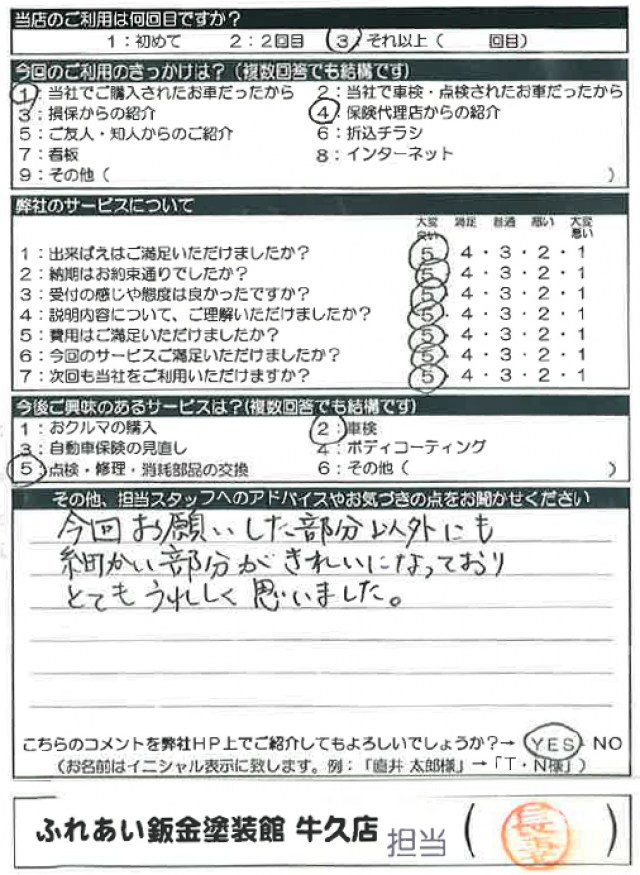 当店のご利用は何回目ですか?
1:初めて 2:2回目 3:それ以上( 回目)
今回のご利用のきっかけは?(複数回答でも結構です)
1:当社でご購入されたお車だったから 2:当社で車検・点検されたお車だったから
3:損保からの紹介 4:保険代理店からの紹介
5:ご友人・知人からのご紹介 6:折込チラシ
7:看板 8:インターネット
9:その他( )
弊社のサービスについて
大変良い 満足 普通 悪い 大変悪い
1:出来ばえはご満足いただけましたか? 5・4・3・2・1
2:納期はお約束通りでしたか? 5・4・3・2・1
3:受付の感じや態度は良かったですか? 5・4・3・2・1
4:説明内容について、ご理解いただけましたか? 5・4・3・2・1
5:費用はご満足いただけましたか? 5・4・3・2・1
6:今回のサービスご満足いただけましたか? 5・4・3・2・1
7:次回も当社をご利用いただけますか? 5・4・3・2・1
今後ご興味のあるサービスは?(複数回答でも結構です)
1:おクルマの購入 2:車検
3:自動車保険の見直し 4:ボディコーティング
5:点検・修理・消耗部品の交換 6:その他( )
その他、担当スタッフへのアドバイスやお気づきの点をお聞かせください
今回お願いした部分以外にも
細かい部分がきれいになっており
とてもうれしく思いました。
こちらのコメントを弊社HP上でご紹介してもよろしいでしょうか?→ YES・NO
(お名前はイニシャル表示に致します。例:「直井 太郎様」→「T・N様」)
ふれあい鈑金塗装館 牛久店 担当 ( )